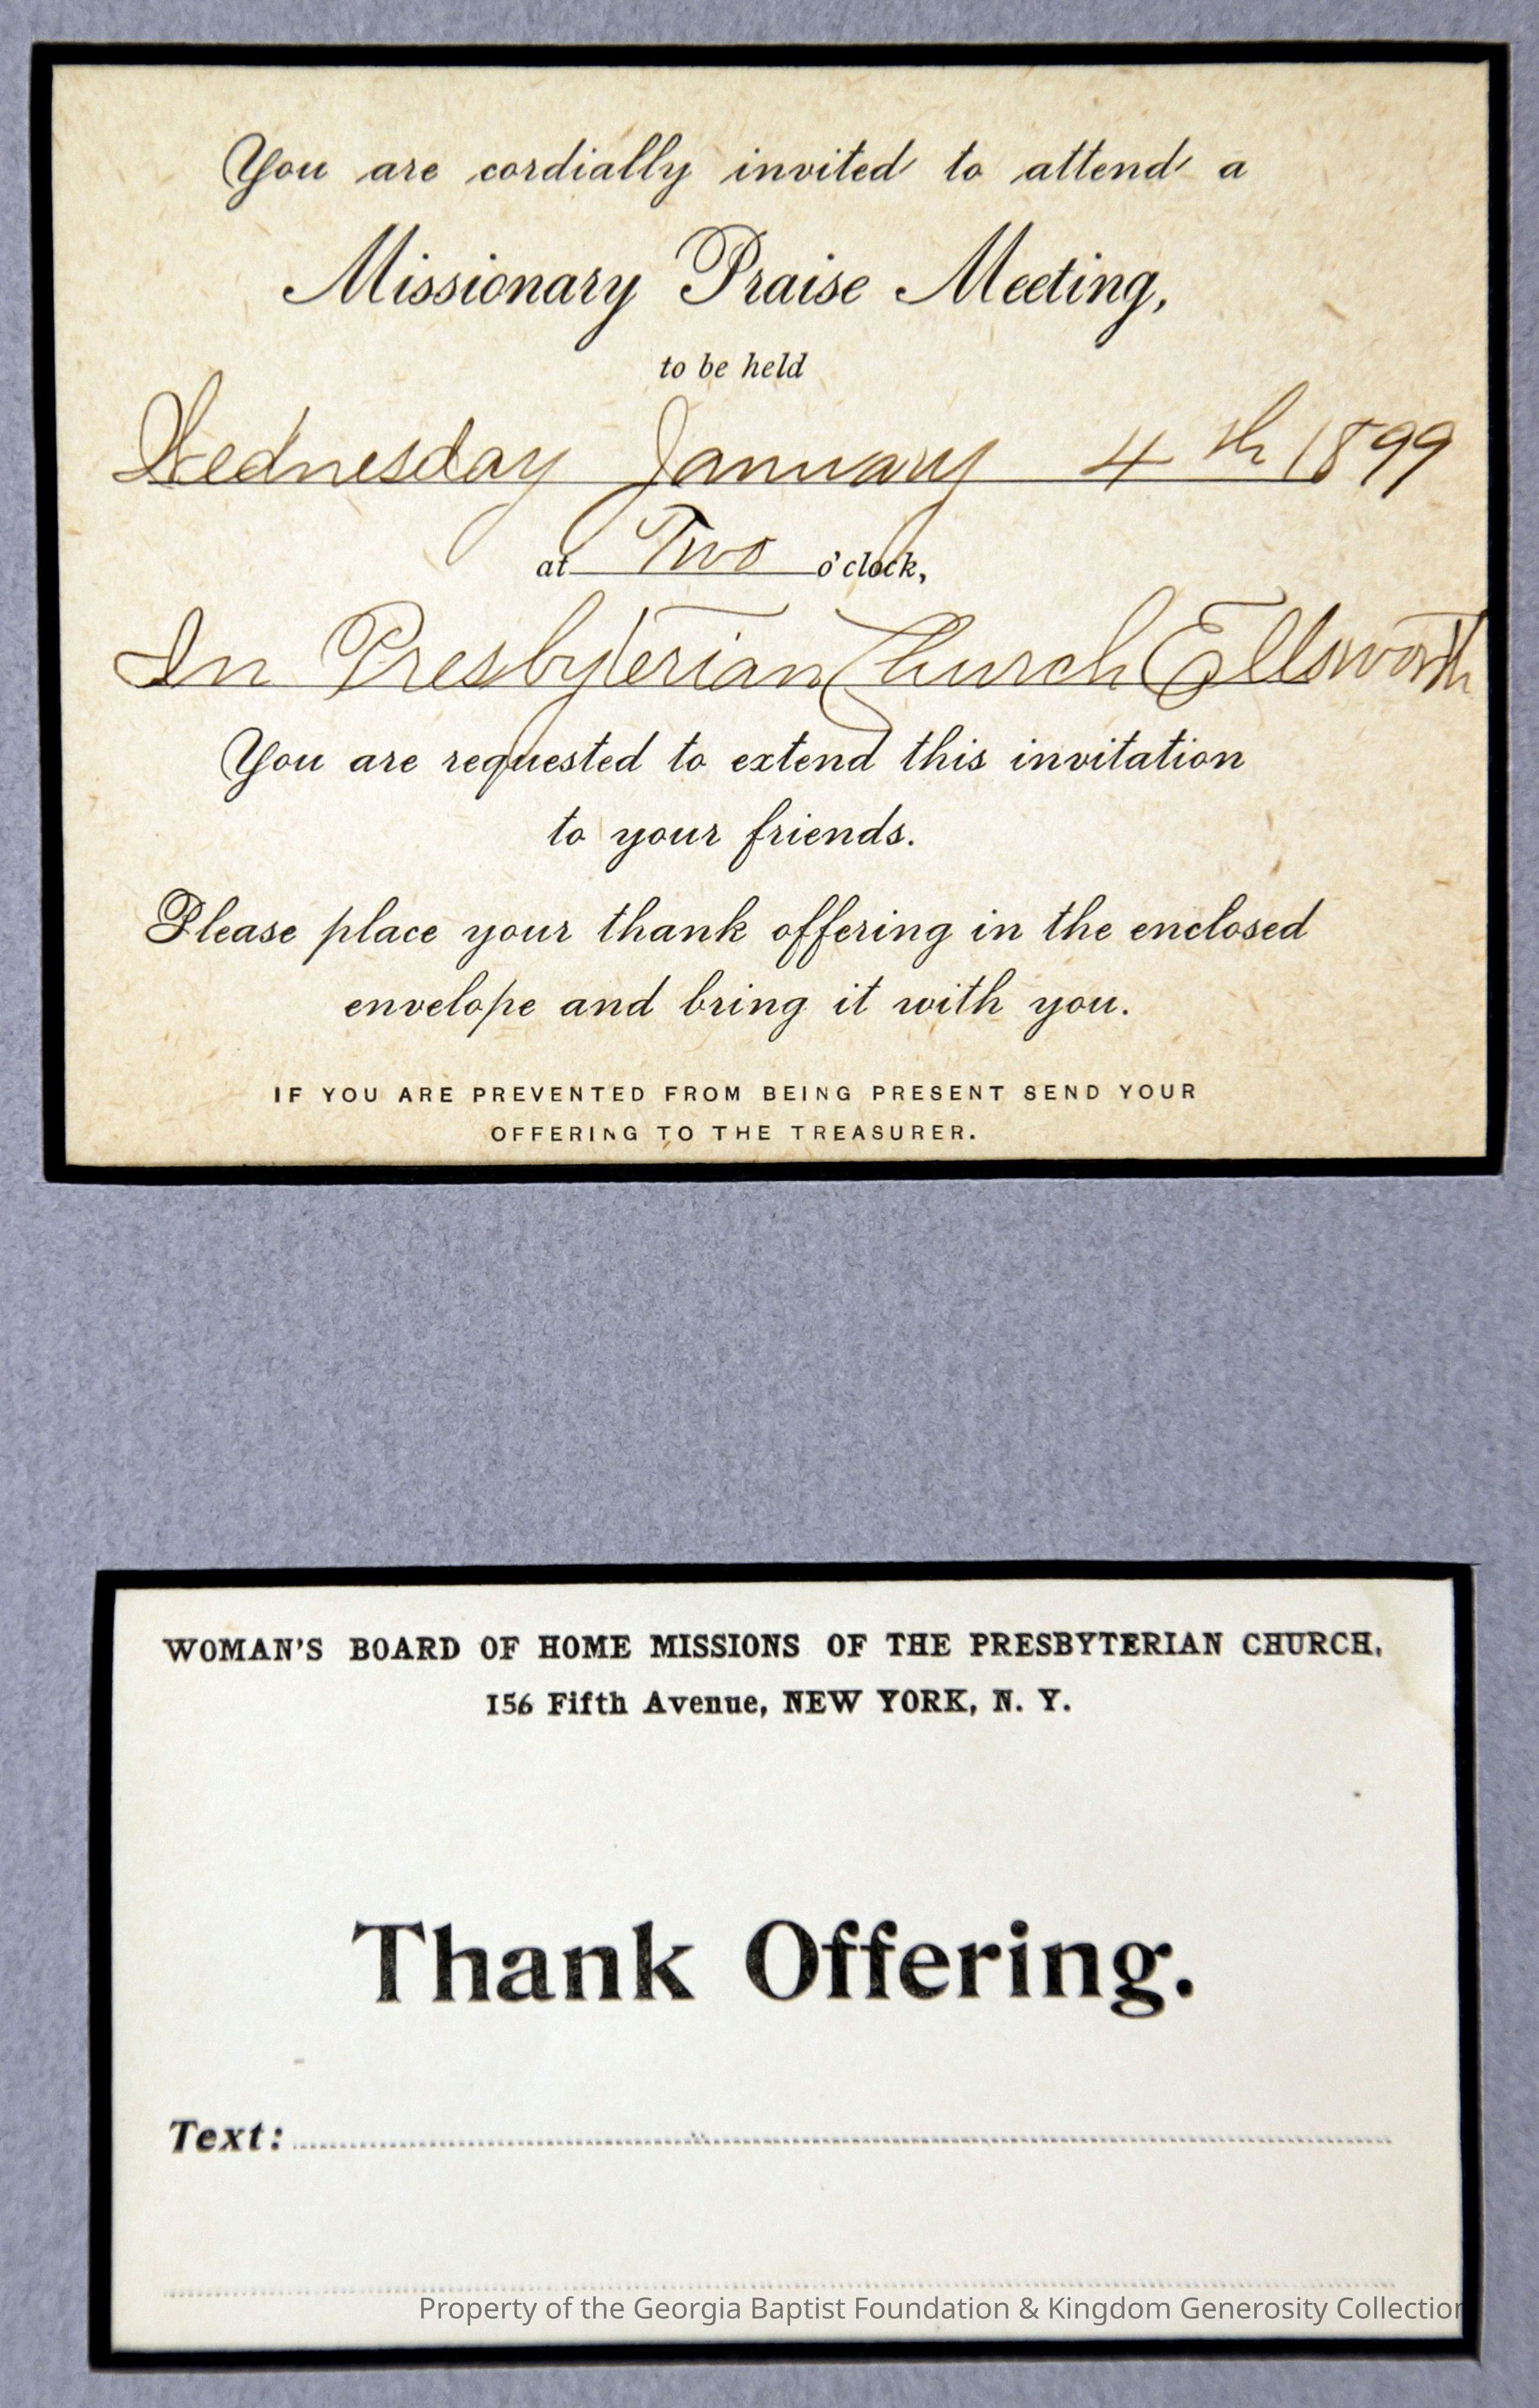 You are cordially invited to attend a
Missionary Praise Meeting,
to be held
Wednesday January 4th 1899
at Two o'clock,
In Presbyterian Church Ellsworth
You are requested to extend this invitation
to your friends.
Please place your thank offering in the enclosed
envelope and bring it with you.
IF YOU ARE PREVENTED FROM BEING PRESENT SEND YOUR
OFFERING TO THE TREASURER.
WOMAN'S BOARD OF HOME MISSIONS OF THE PRESBYTERIAN CHURCH,
156 Fifth Avenue, NEW YORK, N. Y.
Thank Offering.
Text:
Property of the Georgia Baptist Foundation & Kingdom Generosity Collection